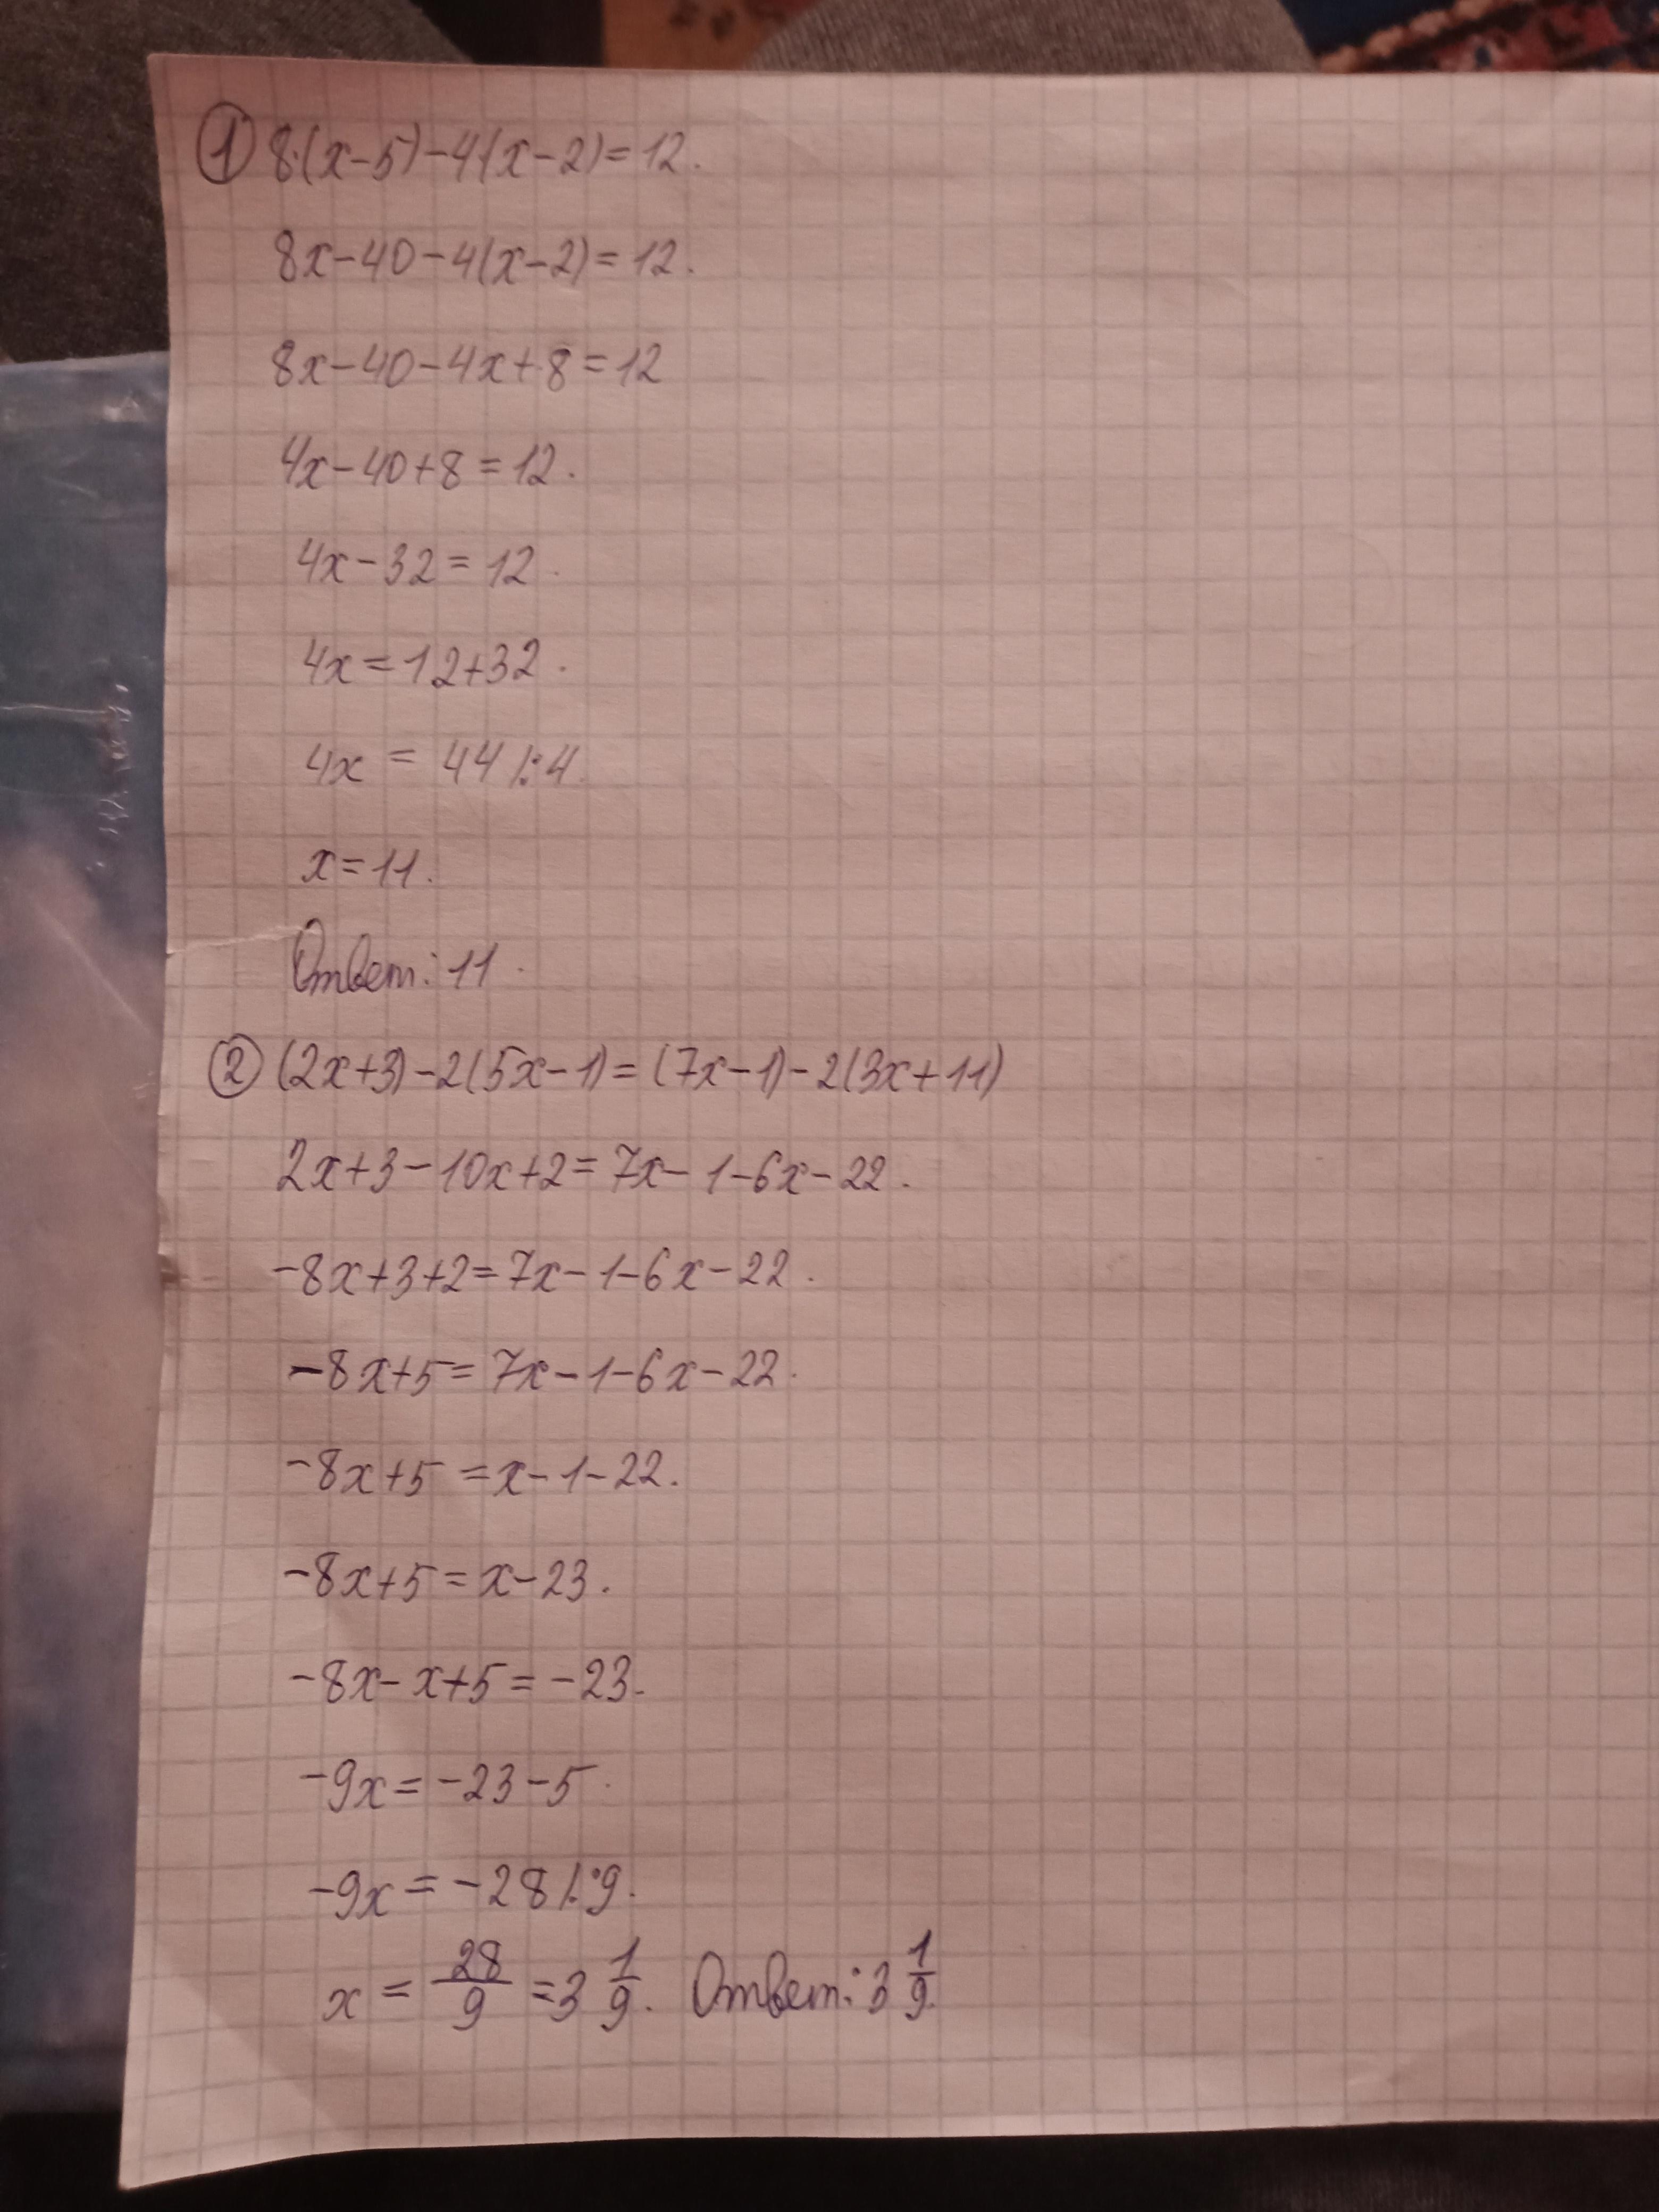 ① 8·(x-5)-4(x-2)=12.
8x-40-4(x-2)=12.
8x-40-4x+8=12
4x-40+8=12.
4x-32=12.
4x=12+32.
4x = 44 |:4.
x=11.
Ответ: 11.
② (2x+3)-2(5x-1)=(7x-1)-2(3x+11)
2x+3-10x+2=7x-1-6x-22.
-8x+3+2=7x-1-6x-22.
-8x+5=7x-1-6x-22.
-8x+5=x-1-22.
-8x+5=x-23.
-8x-x+5=-23.
-9x=-23-5.
-9x=-28 |:9.
x = 28/9 = 3 1/9. Ответ: 3 1/9.